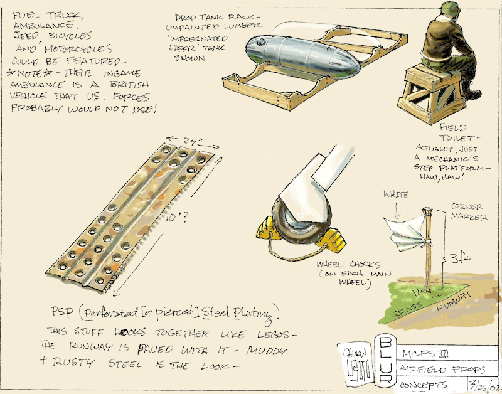 FUEL TRUCK,
AMBULANCE,
JEEP BICYCLES
AND MOTORCYCLES
COULD BE FEATURED-
*NOTE*- THEIR INGAME
AMBULANCE IS A BRITISH
VEHICLE THAT U.S. FORCES
PROBABLY WOULD NOT USE!
DROP TANK RACK-
UNPAINTED LUMBER
PAPER" TANK
SHOWN
FIELD
TOILET-
ACTUALLY, JUST
A MECHANIC'S
STEP PLATFORM-
HAW, HAW!
24"
10'?
WHEEL CHOCKS
(ON EACH MAIN
WHEEL)
WHITE
CORNER
MARKER
3 ft
RUNWAY
PSP (perforated [or pierced] Steel Plating)
THIS STUFF LOCKS TOGETHER LIKE LEGOS-
THE RUNWAY IS PAVED WITH IT - MUDDY
+ RUSTY STEEL IS THE LOOK-
BLUR
AIRFIELD PROPS
CONCEPTS